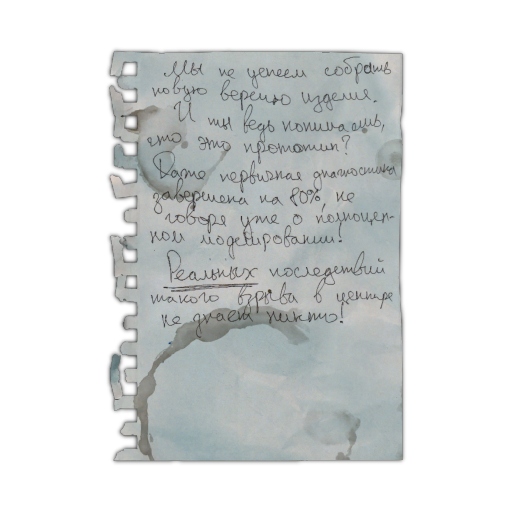 Мы не успеем собрать
новую версию изделия.
И ты ведь понимаешь,
что это прототип?
Даже первичная диагностика
завершена на 80%, не
говоря уже о полноцен-
ном моделировании!
Реальных последствий
такого взрыва в центре
не знает никто!